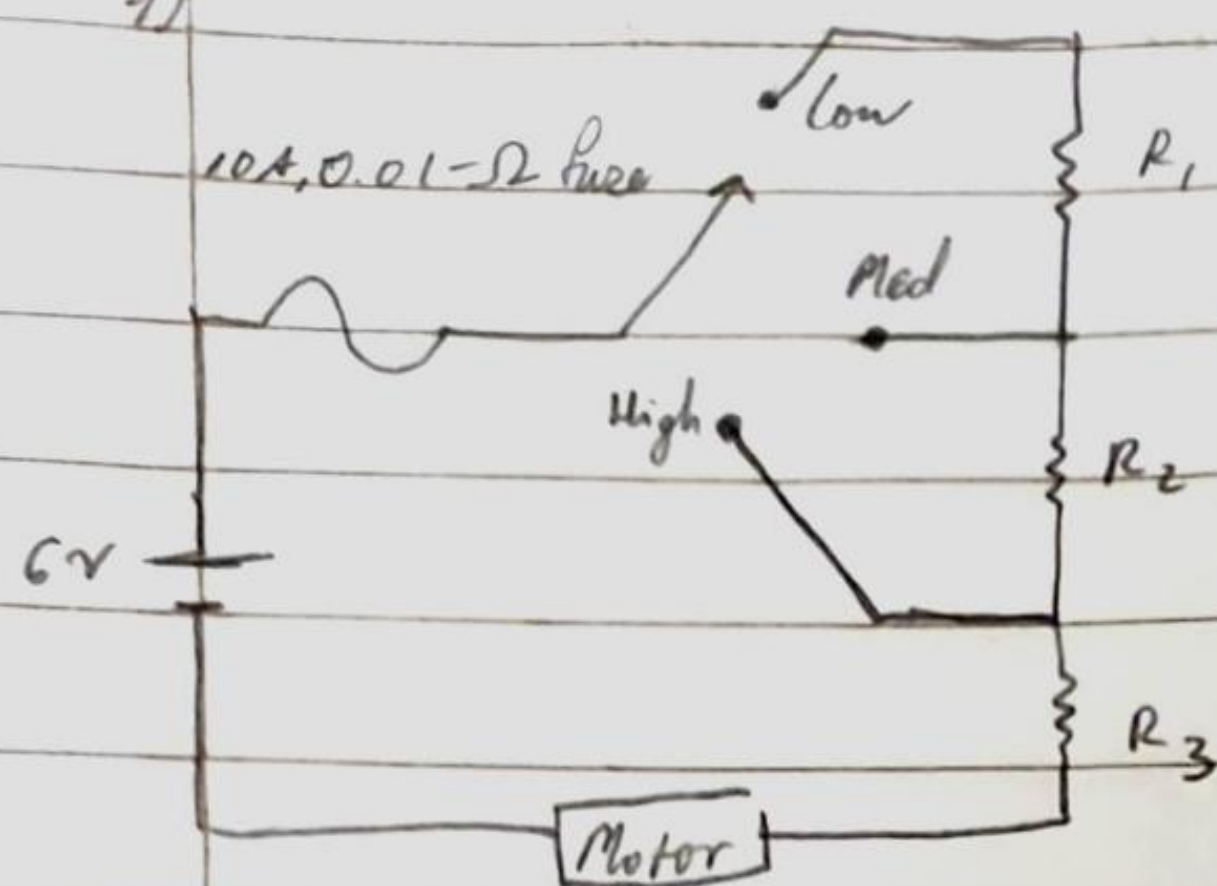 1)
Low
10A, 0.01-Ω fuze
R1
Med
High
R2
6v
R3
Motor